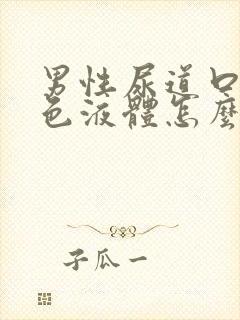 男性尿道口
色液體怎麼
子瓜一